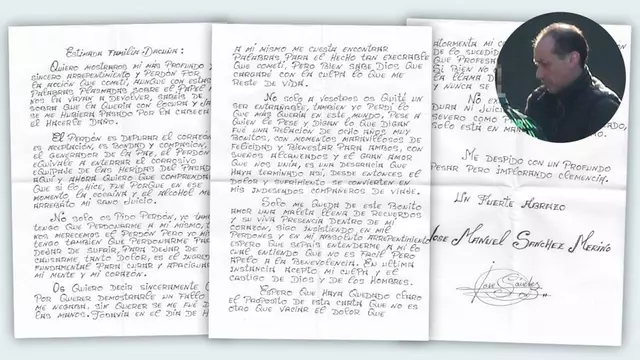 Estimada Familia Dacuña:
Quiero mostraros mi más profundo y
sincero arrepentimiento y perdón por
la acción que cometí, aunque con estas
palabras plasmadas sobre el papel
nos la vayan a devolver, sabéis de
sobra que la quería con locura y
se me hubiera pasado por la cabeza
el hacerle daño.
El perdón es depurar el corazón
es aceptación, es bondad y compasión,
el generador de la paz, el perdón
equivale a enterrar el corrosivo
equipaje de las heridas del pasado
aquí y ahora quiero que comprendáis
que si lo hice, fué porque en ese
momento la cocaína y el alcohol me
arrebató mi sano juicio.
No solo os pido perdón, yo
tengo que perdonarme a mí mismo,
nos merezcas el perdón pero yo
tengo también que perdonarme para
dejar de sufrir, para dejar de
causarme, tanto dolor, es el
fundamental para curar y apaciguar
mi mente y mi corazón.
Os quiero decir sinceramente
por querer demostrarle un fallo
me negaba, sin querer se me fué
las manos. Todavía en el día de
a mí mismo me cuesta encontrar
palabras para el hecho tan execrable
que cometí, pero bien sabe Dios
que cargaré con la culpa lo que me
reste de vida.
No solo a vosotros os quité un
ser entrañable, también yo perdí lo
que más quería en este mundo, pese a
quien le pese y digan lo que digan
fué una relación de ocho años muy
bonitos, con momentos maravillosos de
felicidad y bienestar para ambos, con
sueños alcanzados y el gran amor
que nos unía, es una desgracia que
haya terminado así, desde entonces el
dolor y sufrimiento se convierten en
mis indeseados compañeros de viaje.
Solo me queda de este bonito
amor una maleta llena de recuerdos
y su viva presencia dentro de mi
corazón, sigo insistiendo en mil
perdones y en mi absoluto arrepentimiento
espero que sepáis entenderme a mí lo
cual entiendo que no es fácil pero
apelo a la benevolencia. En última
instancia acepto mi culpa y el
castigo de Dios y de los hombres.
Espero que haya quedado claro
el propósito de esta carta que no es
otro que vaciar el dolor que
atormenta mi
de lo sucedido
que profesa
si bien no
la llama d
y nunca se
No ex
dura ni juici
severo como
solo está en ma
Me despido con un profundo
pesar pero implorando clemencia.
Un fuerte abrazo
Jose Manuel Sanchez Merino
Jose Sánchez